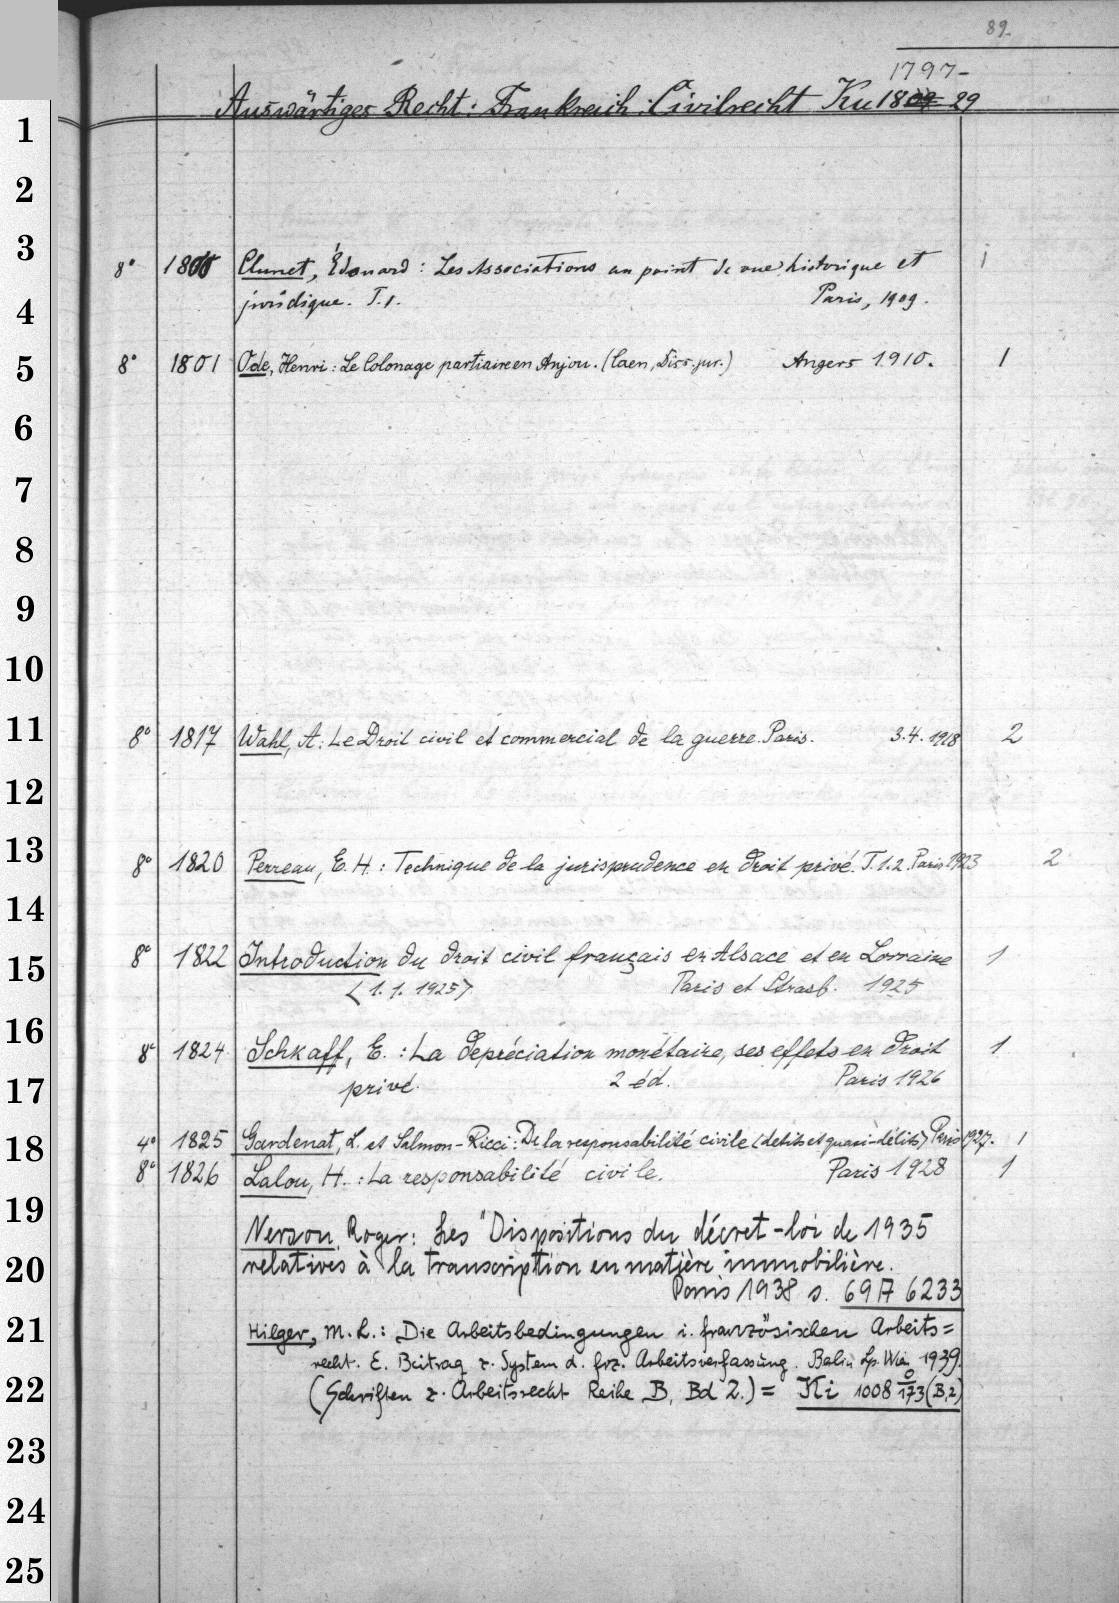 89.
1797-
Auswärtiges Recht: Frankreich: Civilrecht Ku 1809 29
1
2
3 8° 1800 Clunet, Édouard: Les Associations au point de vue historique et 1
4 juridique. T.1. Paris, 1909.
5 8° 1801 Ode, Henri: Le Colonage partiaire en Anjou. (Caen, Diss. jur.) Angers 1910. 1
6
7
8
9
10
11 8° 1817 Wahl, A.: Le Droit civil et commercial de la guerre. Paris. 3.4. 1918 2
12
13 8° 1820 Perreau, E. H.: Technique de la jurisprudence en droit privé. T. 1.2. Paris. 1923 2
14
15 8° 1822 Introduction du droit civil français en Alsace et en Lorraine 1
<1.1. 1925> Paris et Strasb. 1925
16 8° 1824 Schkaff, E.: La dépréciation monétaire, ses effets en droit 1
17 privé. 2 éd. Paris 1926
18 4° 1825 Gardenat, L. et Salmon-Ricci: De la responsabilité civile <delits et quasi-délits> Paris 1927. 1
8° 1826 Lalou, H.: La responsabilité civile. Paris 1928 1
19 Nerson, Roger: Les Dispositions du décret-loi de 1935
20 relatives à la transcription en matière immobilière.
Paris 1938 s. 69 A 6233
21 Hilger, M.L.: Die Arbeitsbedingungen i. französischen Arbeits=
recht. E. Beitrag z. System d. frz. Arbeitsverfassung. Berlin Lp. Wien 1939.
22 (Schriften z. Arbeitsrecht Reihe B, Bd 2.) = Ki 1008 0/173 (B,2)
23
24
25